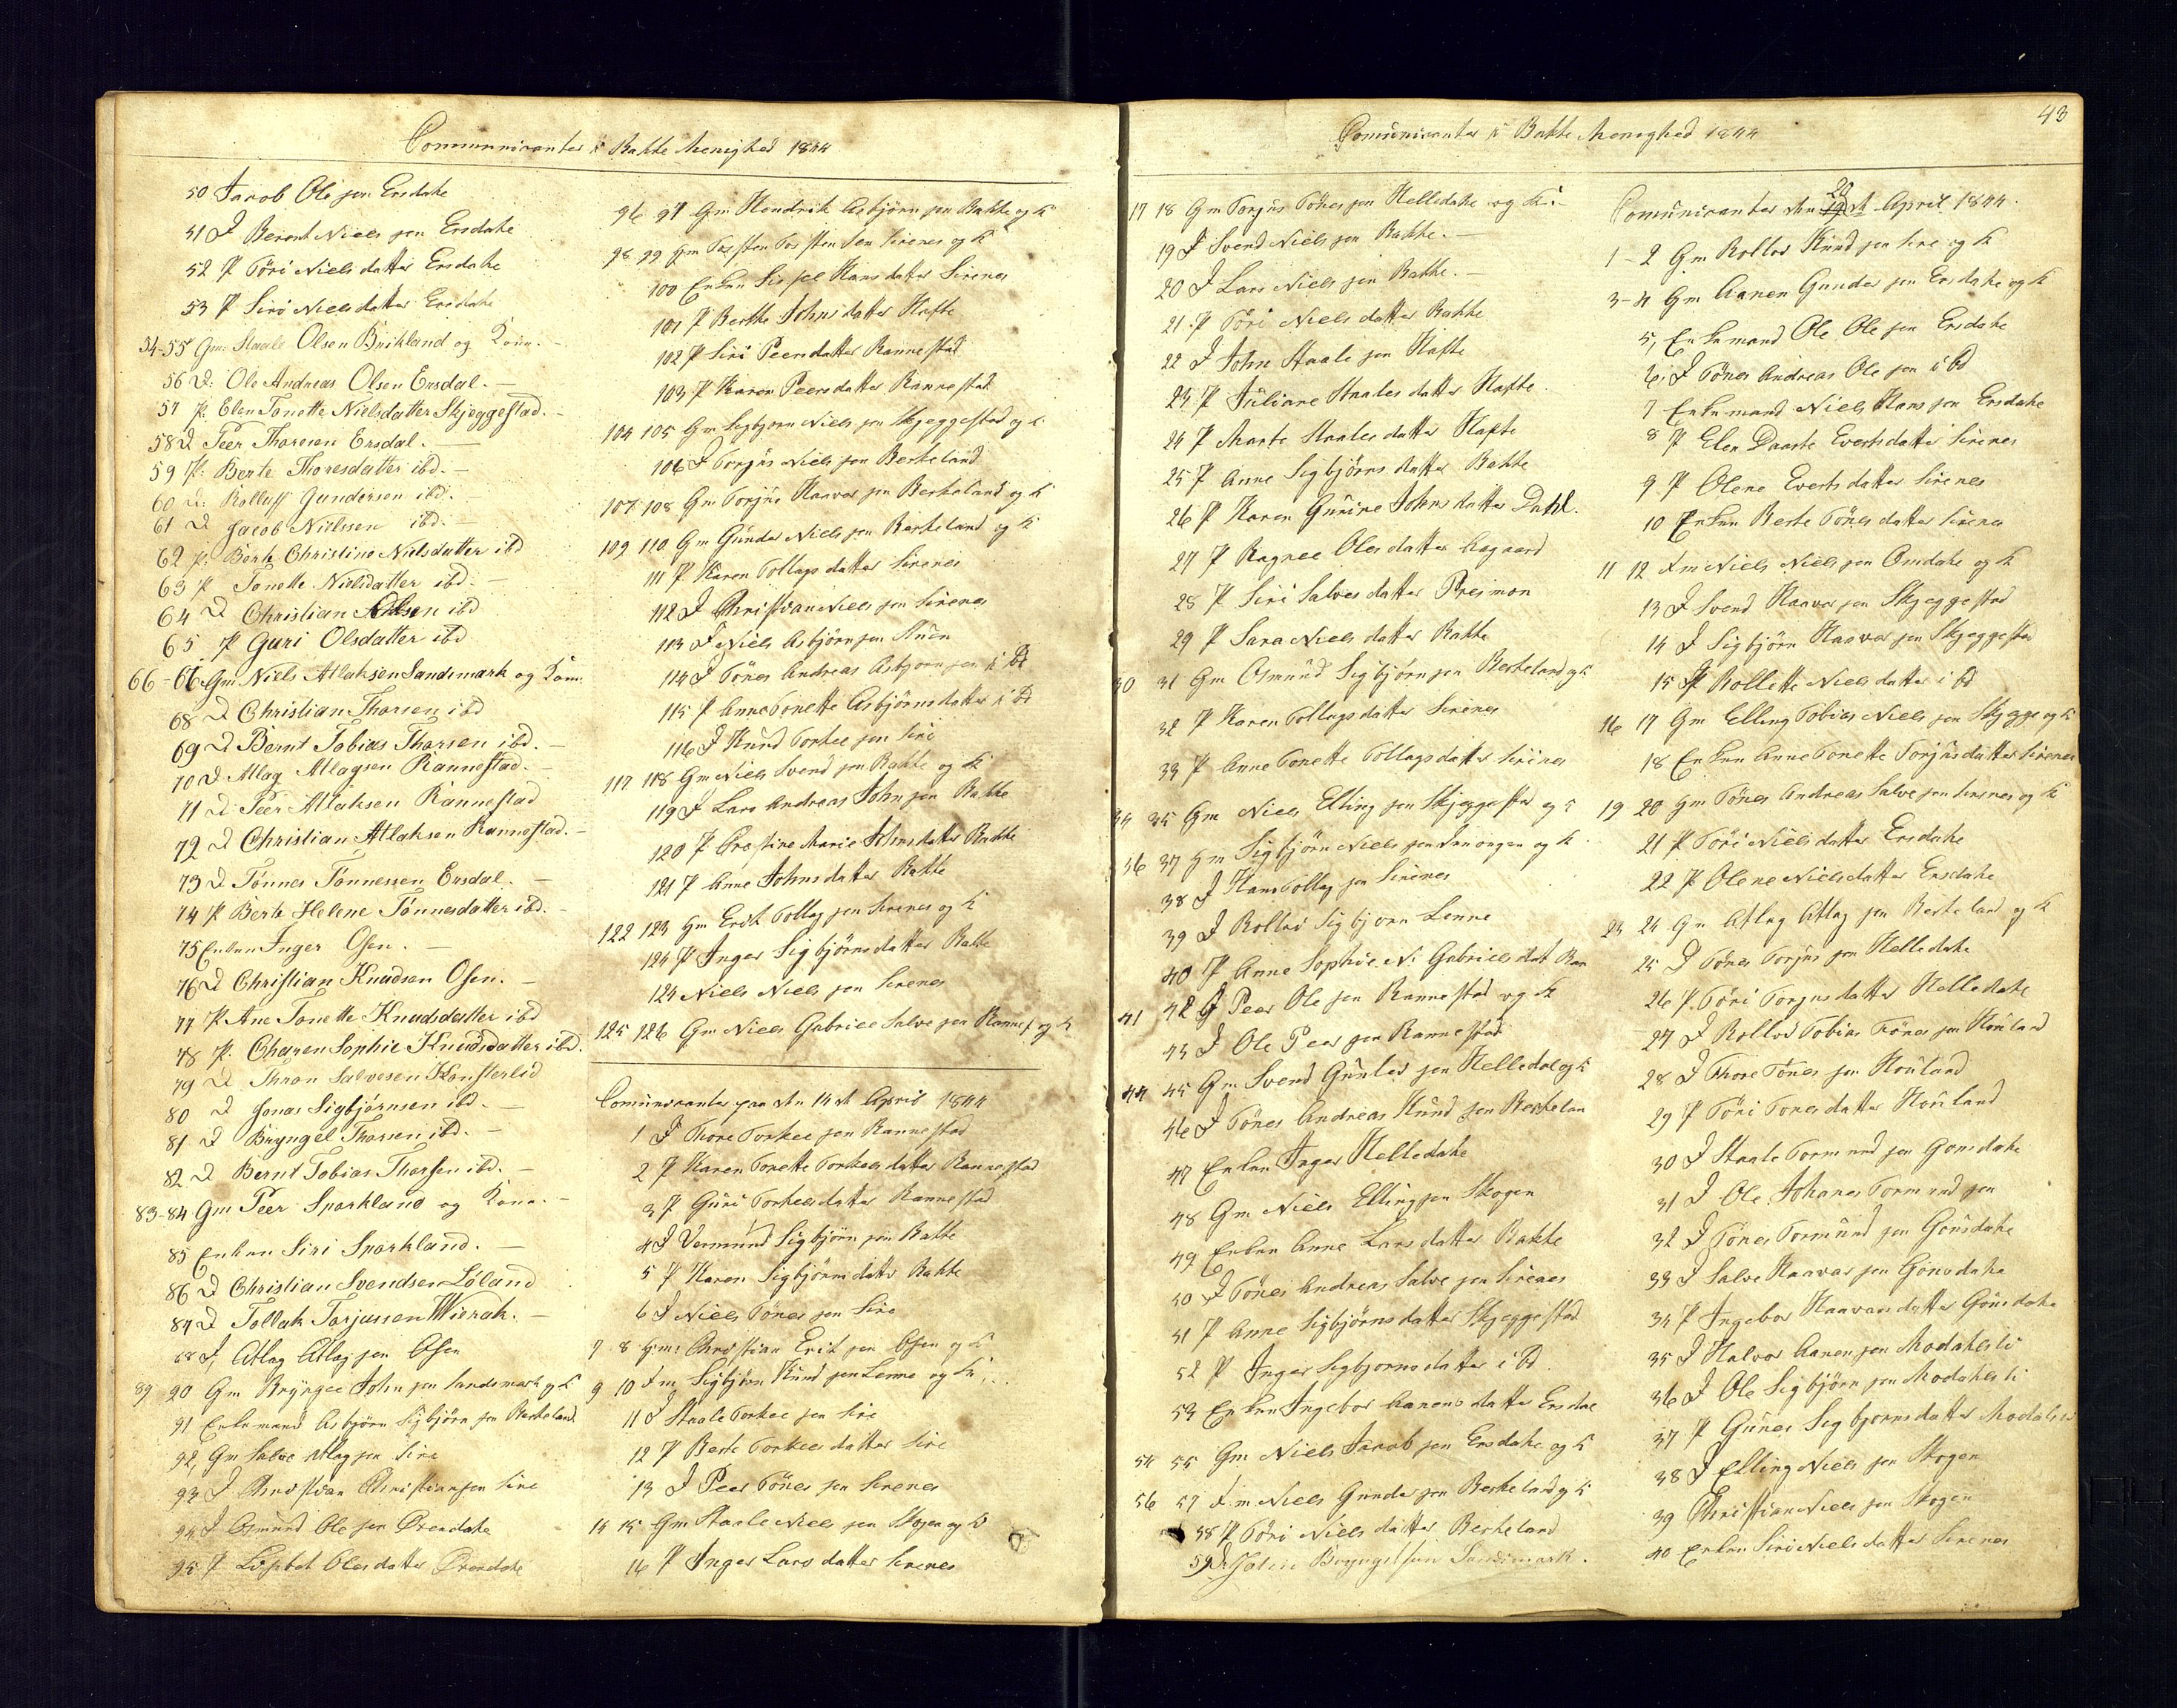 Communicanter i Bakke Menighed 1844
50 Jacob Ole sen Ersdahe
51 D Berent Niels sen Ersdahe
52 P Töri Niels datter Ersdahe
53 P Siri Niels datter Ersdahe
54-55 Gm: Staale Olsen Birkland og Kone. -
56 D: Ole Andreas Olsen Ersdal. -
57 P: Elen Tonette Nielsdatter Skjeggestad. -
58 D Peer Thoresen Ersdal. -
59 P: Berte Thoresdatter ibd. -
60 D: Rolluff Gundersen ibd. -
61 D Jacob Nielssen ibd. -
62 P. Berte Christine Nielsdatter ibd
63 P Tonette Nielsdatter ibd. -
64 D Christian Olsen ibd
65 P Guri Olsdatter ibd
66-66 Gm Niels Atlaksen Sandsmark og Kone.
68 D Christian Thorsen ibd
69 D Bernt Tobias Thorsen ibd. -
70 D Atlag Atlagsen Rannestad. -
71 D Peer Atlaksen Rannestad
72 D Christian Atlaksen Rannestad. -
73 D Tönnes Tönnessen Ersdal. -
74 P Berte Helene Tönnesdatter ibd. -
75 Enken Inger Osen. -
76 D Christian Knudsen Osen. -
77 P Ane Tonette Knudsdatter ibd
78 P. Charen Sophie Knudsdatter ibd.
79 D Thron Salvesen Konsterlid
80 D Jonas Sigbjörnsen ibd. -
81 D Bryngel Thorsen ibd. -
82 D Bernt Tobias Thorsen ibd. -
83-84 Gm Peer Sparkland og Kone. -
85 Enken Siri Sparkland. -
86 D Christian Svendsen Löland
87 D Tollak Torjussen Wierak. -
88 D, Atlag Atlag sen Osen
89 90 Gm Bryngee John sen Sandsmark og K
91 Enkemand Asbjörn Sigbjörn sen Berkeland
92, Gm Salve Atlag sen Sire
93 D Christian Christian sen Sire
94 D Osmund Ole sen Ørendahe
95 P Lisebet Oles datter Ørendahe
96 97 Gm Hendrik Asbjörn sen Bakke og K
98 99 Gm Torsten Torsten sen Sirenes og K
100 Enken Sissel Hans datter Sirenes
101 P Berthe Johns datter Hafte
102 P Siri Peers datter Rannestad
103 P Karen Peers datter Rannestad
104 105 Gm Sigbjorn Niels sen Skjeggestad og K
106 D Torjus Niels sen Berkeland
107 108 Gm Torjus Haavor sen Berkeland og K
109 110 Gm Gunder Niels sen Berkeland og K
111 P Karen Tollags datter Sirenes
112 D Christian Niels sen Sirenes
113 D Niels Asbjörn sen
114 D Tönes Andreas Asbjorn sen i bd
115 P Anne Tonette Asbjörns datter i bd
116 D Knud Torkee sen Sire
117 118 Gm Niels Svend sen Bakke og K
119 D Lars Andreas John sen Bakke
120 P Crestine Marie Johns datter Bakke
121 P Anne Johns datter Bakke
122 123 Gm Erik Tollag sen Sirenes og K
124 P Inger Sigbjörns datter Bakke
124 Niels Niels sen Sirenes
125 126 Gm Niels Gabriel Salve sen Rannes. og K
Comunicanter paa den 14 de April 1844
1 D Thore Torkee sen Rannestad
2 P Karen Tonette Torkees datter Rannestad
3 P Guri Torkees datter Rannestad
4 D Vermund Sigbjörn sen Bakke
5 P Karen Sigbjörns datter Bakke
6 D Niels Tönes sen Sire
7 8 Gm: Christian Erik sen Osen og K
9 10 Gm Sigbjörn Knud sen Lenne og K.
11 D Staale Torkee sen Sire
12 P Berte Torkees datter Sire
13 D Peer Tönes sen Sirenes
14 15 Gm Staale Niels sen Skogen og K
16 P Inger Lars datter Sirenes
Comunicanter i Bakke Menighed 1844
43
17 18 Gm Torjus Tönes sen Helledahe og K. -
19 D Svend Niels sen Bakke. -
20 D Lars Niels sen Bakke. -
21. P Töri Niels datter Bakke
22 D John Staale sen Hafte
23 P Juliane Staales datter Hafte
24 P Marte Staales datter Hafte
25 P Anne Sigbjörns datter Bakke
26 P Karen Gurine Johns datter Dahl.
27 P Ragnee Oles datter Aagaard
28 P Siri Salves datter Presmon
29 P Sara Niels datter Bakke
30 31 Gm Osmund Sigbjörn sen Berkeland og K
32 P Karen Tollags datter Sirenes
33 P Anne Tonette Tollags datter Sirenes
34 35 Gm Niels Elling sen Skjeggestad og K
36 37 Gm Sigbjörn Niels sen og K
38 D Hans Tollag sen Sirenes
39 D Rollov Sigbjorn Lenne
40 P Anne Sophie Ni Gabriels dat Ran
41 42 G Peer Ole sen Rannestad og K
43 D Ole Peer sen Rannestad
44 45 Gm Svend Gunlev sen Helledal og K
46 D Tönes Andreas Knud sen Berkelan
47 Enken Inger Helledahe
48 Gm Niels Elling sen Skogen
49 Enken Anne Lars datter Bakke
50 D Tönes Andreas Salve sen Sirenes
51 P Anne Sigbjörns datter Skjeggestad
52 P Inger Sigbjorns datter i bd
53 Enken Ingebor Aanens datter Ersdal
54 55 Gm Niels Jacob sen Ersdahe og K
56 57 Gm Niels Gunder sen Berkeland og K
58 P Töri Niels datter Berkeland
59 D John Bryngelsen Sandsmark.
Comunicanter den 20 de April 1844.
1-2 Gm Rollov Knud sen Sire og K
3-4 Gm Aanen Gunder sen Ersdahe og K
5, Enkemand Ole Ole sen Ersdahe
6, D Tönes Andreas Ole sen i bd
7 Enkemand Niels Hans sen Ersdahe
8 P Elen Daarte Everts datter Sirenes
9 P Olene Everts datter Sirenes
10 Enken Berte Tönes datter Sirenes
11 12 Gm Niels Niels sen Omdahe og K
13 D Svend Haavor sen Skjeggestad
14 D Sigbjörn Haavor sen Skjeggestad
15 P Rollette Niels datter i bd
16 17 Gm Elling Tobias Niels sen Skjegge og K
18 Enken Anne Tonette Torjus datter Sirenes
19 20 Gm Tönes Andreas Salve sen Sirenes og K
21 P Töri Niels datter Ersdahe
22 P Olene Niels datter Ersdahe
23 24 Gm Atlag Atlag sen Berkeland og K
25 D Tönes Torjus sen Helledahe
26 P. Töri Torjus datter Helledahe
27 D Rollov Tobias Tönes sen Houland
28 D Thore Tönes sen Houland
29 P Töri Tones datter Houland
30 D Staale Tormund sen Gonsdahe
31 D Ole Johanes Tormund sen
32 D Tönes Tormund sen Gonsdahe
33 D Salve Haavar sen Gonsdahe
34 P Ingebor Haavars datter Gonsdahe
35 D Halvor Aanen sen Modahesli
36 D Ole Sigbjörn sen Modahesli
37 P Guner Sigbjorns datter Modalsli
38 D Elling Niels sen Skogen
39 Christian Niels sen Skogen
40 Enken Siri Niels datter Sirenes